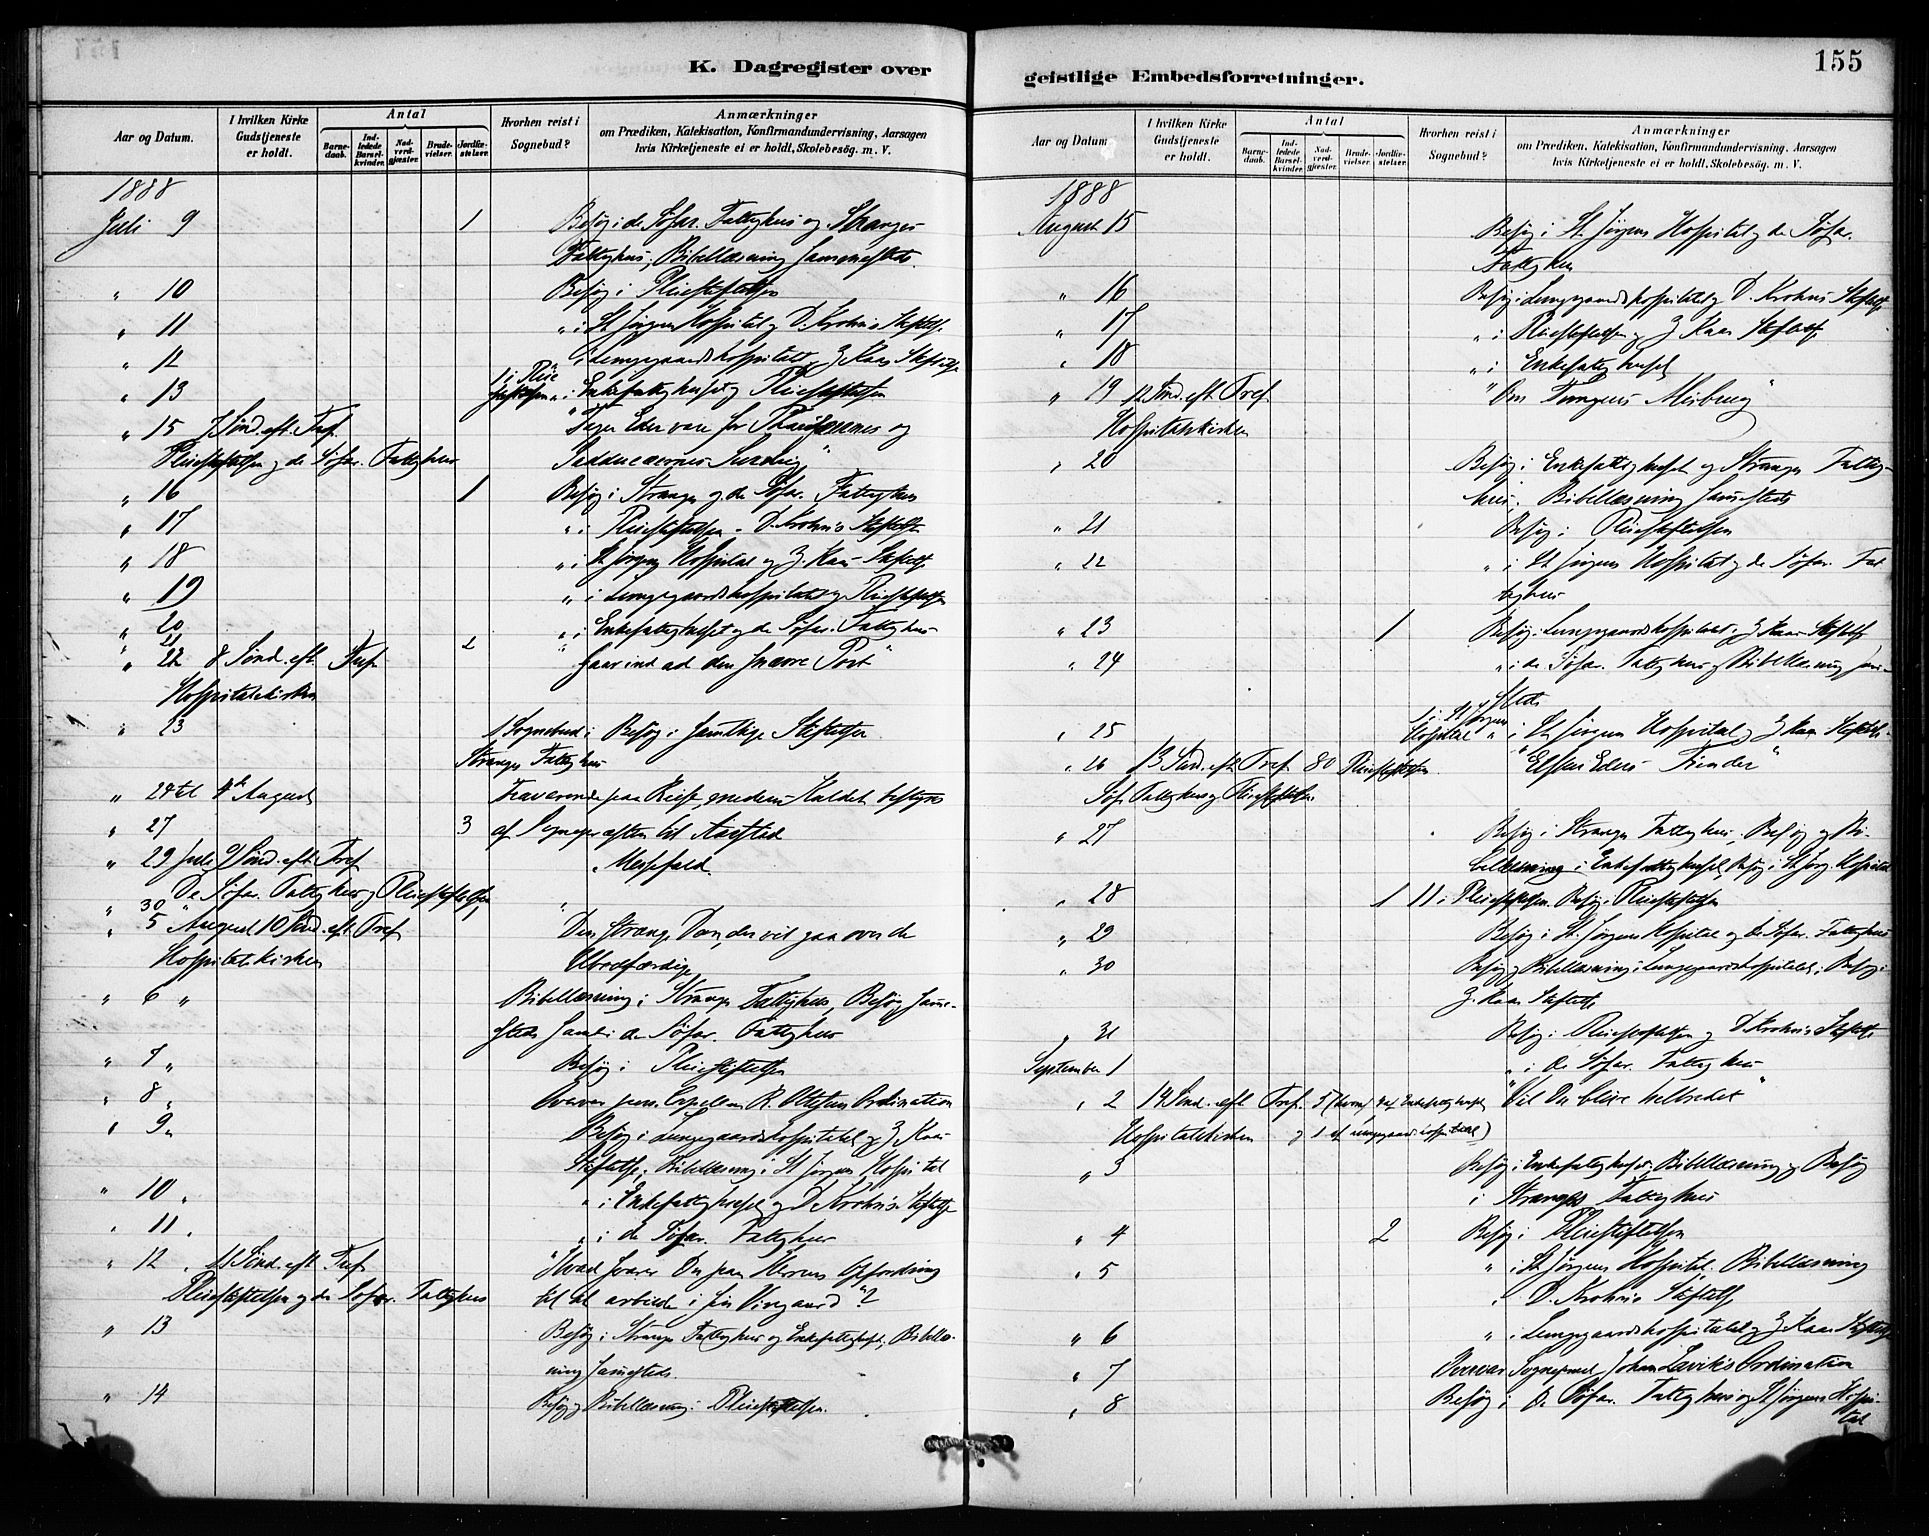 K. Dagregister over
Aar og Datum.
I hvilken Kirke Gudstjeneste er holdt.
Antal
Barnedaab.
Indledede Barselkvinder.
Nadverdgjæster.
Brudevielser.
Jordfæstelser.
Hvorhen reist i Sognebud?
Anmærkninger
om Prædiken, Katekisation, Konfirmandundervisning, Aarsagen
hvis Kirketjeneste ei er holdt, Skolebesøg. m. V.
1888
Juli 9 1 Besøg i de Søfar. Fattighus og Stranges
Fattighus; Bibellæsning sammesteds.
" 10 Besøg i Pleiestiftelsen
" 11 " i St Jørgens Hospital og D. Krohns Stiftelse.
" 12 " i Lungegaardshospitalet og Z. Kaas Stiftelse
" 13 1 i Pleiestiftelsen " i Enkefattighuset og Pleiestiftelsen
" 15 7 Sønd. eft. Tref. "Tager Eder vare for Pharisæernes og
Pleiestiftelsen og de Søfar. Fattighus Sadducæernes Surdeig"
" 16 1 Besøg i Stranges og de Søfar. Fattighus
" 17 " i Pleiestiftelsen - D. Krohns Stiftelse
" 18 " i St Jørgens Hospital og Z. Kaas Stiftelse
" 19 " i Lungegaardshospitalet og Pleiestiftelsen
" 20 " i Enkefattighuset og de Søfar. Fattighus
" 21 2
" 22 8 Sønd. eft. Tref. "Gaar ind ad den snævre Port"
Hospitalskirken
" 23 1 Sognebud i Besøg i samtlige Stiftelser
Stranges Fattighus
" 24 til 4de August Fraværende paa Reise, medens Kaldet bestyres
" 27 3 af Sognepræsten til Aarstad
" 29 Juli 9 Sønd. eft. Tref. Merssefald.
De Søfar. Fattighus og Pleiestiftelsen,
" 30 " "
" 5 August 10 Sønd. eft. Tref. Den strenge Dom, der vil gaa over de
Hospitalskirken Ubodfærdige
" 6 " Bibellæsning i Stranges Fattighus, Besøg samme-
steds samt i de Søfar. Fattighus
" 7 " Besøg i Pleiestiftelsen
" 8 " Overvar pers. Capellan R. Ottesens Ordination
" 9 " Besøg i Lungegaardshospitalet og Z. Kaas
Stiftelse; Bibellæsning i St Jørgens Hospital
" 10 " " i Enkefattighuset og D. Krohns Stiftelse
" 11 " " i de Søfar. Fattighus
" 12 " 11 Sønd. eft. Tref. "Hvad svarer Du paa Herrens Opfordring
Pleiestiftelsen og de Søfar. Fattighus til at arbeide i sin Viingaard"?
" 13 Besøg i Stranges Fattighus og Enkefattighuset; Bibellæs-
ning samesteds.
" 14 Besøg og Bibellæsning i Pleiestiftelsen.
155
geistlige Embedsforretninger.
Aar og Datum
I hvilken Kirke Gudstjeneste er holdt.
Antal
Barnedaab.
Indledede Barselkvinder.
Nadverdgjæster.
Brudevielser.
Jordfæstelser.
Hvorhen reist i Sognebud?
Anmærkninger
om Prædiken, Katekisation, Konfirmandundervisning, Aarsagen
hvis Kirketjeneste ei er holdt, Skolebesøg. m. V.
1888
August 15 Besøg i St. Jørgens Hospital og de Søfar.
Fattighus
" 16 Besøg i Lungegaardshospitalet og D. Krohns Stiftelse
" 17 " i Pleiestiftelsen og Z Kaas Stiftelse
" 18 " i Enkefattighuset
" 19 12 Sønd. eft. Tref. "Om Tungens Misbrug"
Hospitalskirken
" 20 Besøg i Enkefattighuset og Stranges Fattig-
hus. Bibellæsning samesteds
" 21 Besøg i Pleiestiftelsen
" 22 " i St Jørgens Hospital og de Søfar. Fat-
tighus
" 23 1 Besøg i Lungegaardshospitalet og Z Kaas Stiftelse
" 24 " i de Søfar. Fattighus og Bibellæsning sam-
steds
" 25 1 i St Jørgens Hospital " i St Jørgens Hospital og Z Kaas Stiftelse.
" 26 13 Sønd. eft. Tref. 80 Pleiestiftelsen. "Elsker Eders Fiender"
Søf. Fattighus og Pleiestiftelsen
" 27 Besøg i Stranges Fattighus; Besøg og Bi-
bellæsning i Enkefattighuset, Besøg i St Jørg. Hospital
" 28 1 11 i Pleiestiftelsen. Besøg i Pleiestiftelsen
" 29 Besøg i St. Jørgens Hospital og de Søfar. Fattighus
" 30 Besøg og Bibellæsning i Lungegaardshospitalet, Besøg i
Z. Kaas Stiftelse
" 31 Besøg i Pleiestiftelsen og D. Krohns Stiftelse
September 1 " i de Søfar. Fattighus
" 2 14 Sønd. eft. Tref. 5 (hvoraf 4 af Enkefattighuset "Vil Du blive helbredet"
Hospitalskirken og 1 af Lungegaardshospital)
" 3 Besøg i Enkefattighuset, Bibellæsning og Besøg
i Stranges Fattighus
" 4 2 Besøg i Pleiestiftelsen
" 5 " i St Jørgens Hospital. Bibellæsning
i D. Krohns Stiftelse
" 6 " i Lungegaardshospitalet og Z Kaas Stiftelse
" 7 Overvar Sognepræst Johan Laviks Ordination
" 8 Besøg i de Søfar. Fattighus og St Jørgens Hospi-
tal